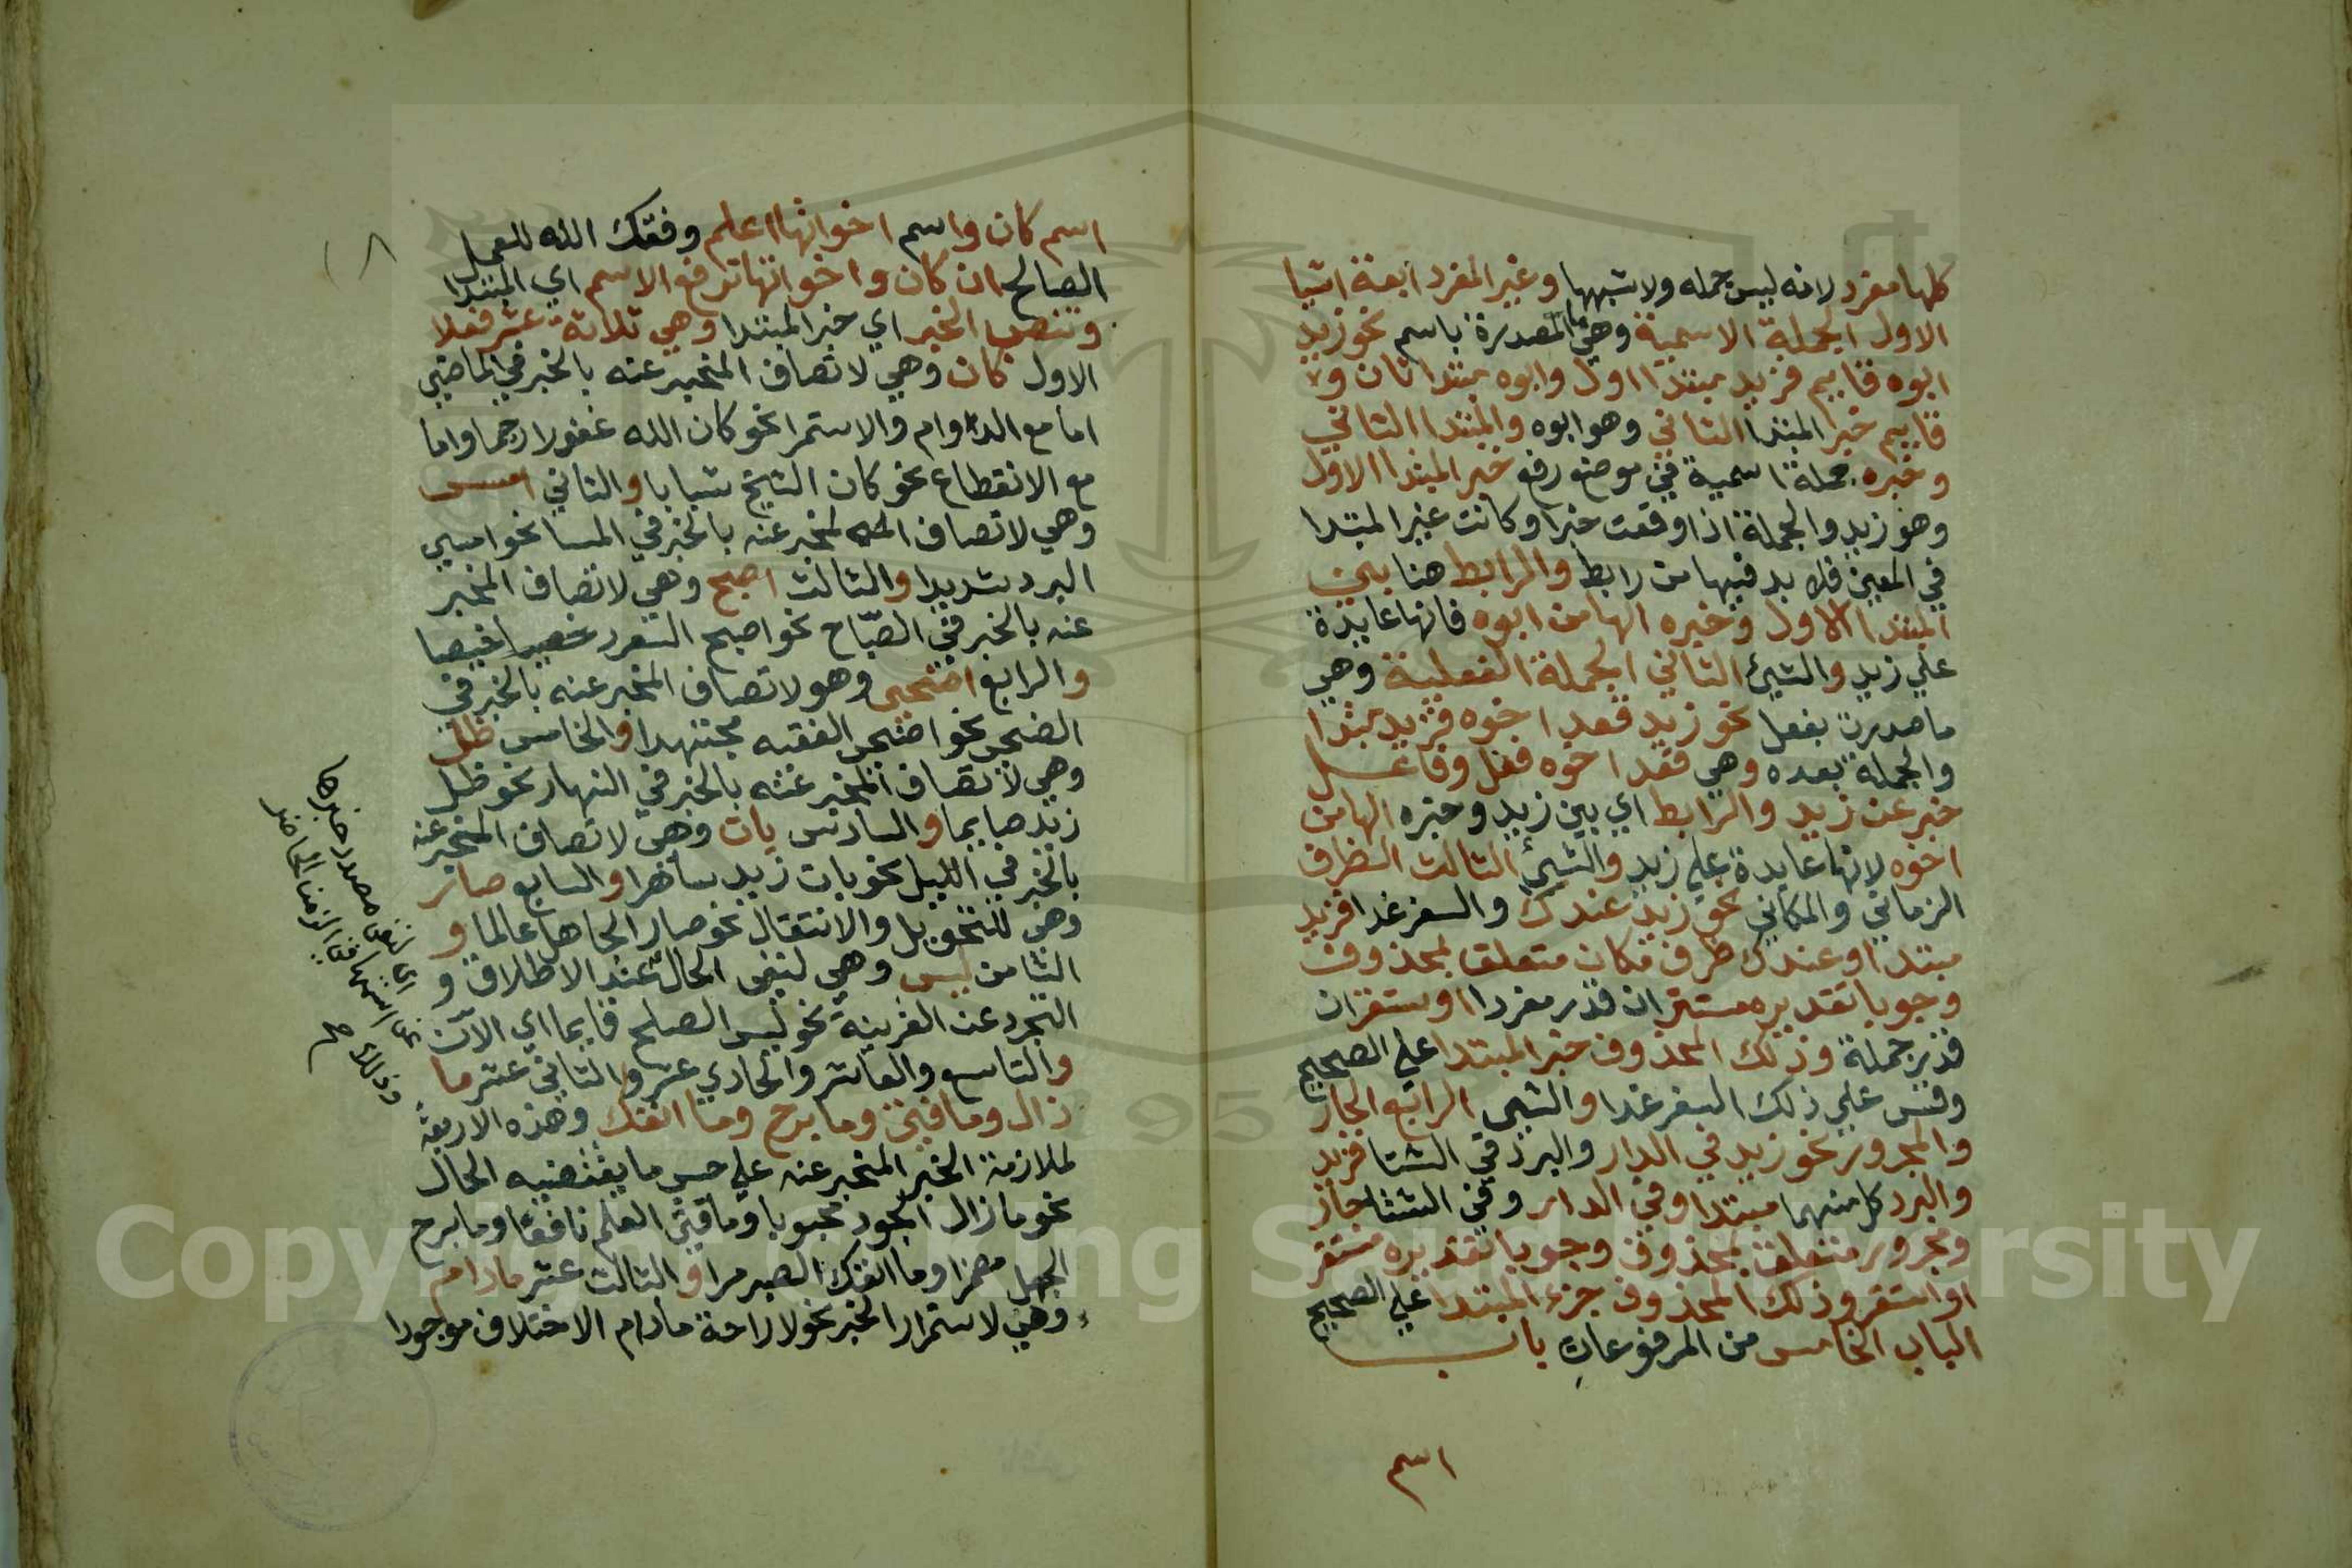 كلها مفرد لانه ليس جمله ولا شبهها وغير المفرد اربعة اشيا
الاول الجملة الاسمية وهي ما المصدرة باسم نحو زيد
ابوه قايم فزيد مبتدا اول وابوه مبتدا ثان و
قايم خبر المبتدا الثاني وهو ابوه والمبتدا الثاني
وخبره جملة اسمية في موضع رفع خبر المبتدا الاول
وهو زيد والجملة اذا وقعت خبرا وكانت غير المبتدا
في المعني فلا بد فيها من رابط والرابط هنا بين
المبتدا الاول وخبره الها من ابوه فانها عايدة
علي زيد والشيئ الثاني الجملة الفعلية وهي
ما صدرت بفعل نحو زيد قعد اخوه فزيد مبتدا
والجملة بعده وهي قعد اخوه فعل وفاعل
خبر عن زيد والرابط اي بين زيد وخبره الها من
اخوه لانها عايدة علي زيد والشيئ الثالث الظرف
الزماني والمكاني نحو زيد عندك والسفر غدا فزيد
مبتدا وعندك ظرف مكان متعلق بمحذوف
وجوبا تقديره مستقر ان قدر مفردا او ستقر ان
قدر جملة وذلك المحذوف خبر المبتدا علي الصحيح
وقس علي ذلك السفر غدا والشيئ الرابع الجار
والمجرور نحو زيد في الدار والبرد في الشتا فزيد
والبرد كل منهما مبتدا وفي الدار وفي الشتا جار
ومجرور متعلق بمحذوف وجوبا تقديره مستقر
او استقر وذلك المحذوف جزء المبتدا علي الصحيح
الباب الخامس من المرفوعات باب
اسم
اسم كان واسم اخواتها اعلم وفقك الله للعمل
الصالح ان كان واخواتها ترفع الاسم اي المبتدا
وتنصب الخبر اي خبر المبتدا وهي ثلاثة عشر فعلا
الاول كان وهي لاتصاف المخبر عنه بالخبر في الماضي
اما مع الدوام والاستمرا نحو كان الله غفورا رحيما واما
مع الانقطاع نحو كان الشيخ شبابا والثاني امسى
وهي لاتصاف المخبر عنه بالخبر في المسا نحو امسي
البرد شديدا والثالث اصبح وهي لاتصاف المخبر
عنه بالخبر في الصباح نحو اصبح السعر رخيصا
والرابع اضحى وهو لاتصاف المخبر عنه بالخبر في
الضحى نحو اضحى الفقيه مجتهدا والخامس ظل
وهي لاتصاف المخبر عنه بالخبر في النهار نحو ظل
زيد صايما والسادس بات وهي لاتصاف المخبر عنه
بالخبر في الليل نحو بات زيد ساهرا والسابع صار
وهي للتحويل والانتقال نحو صار الجاهل عالما و
الثامن ليس وهي لنفي الحال عند الاطلاق و
التجرد عن القرينة نحو ليس الصلح قايما اي الآن
والتاسع والعاشر والحادي عشر والثاني عشر ما
زال وما فتئ وما برح وما انفك وهذه الاربعة
لملازمة الخبر المخبر عنه علي حسب ما يقتضيه الحال
نحو ما زال الجود محبوبا وما فتئ العلم نافعا وما برح
الجهل مضرا وما انفك الصبر مرا والثالث عشر مادام
وهي لاستمرار الخبر نحو لا راحة مادام الاختلاف موجودا
اي لنفي مصدر خبرها
عن اسمها في الزمن الحاضر
وذلك صح
Copyright © King Saud University
1957